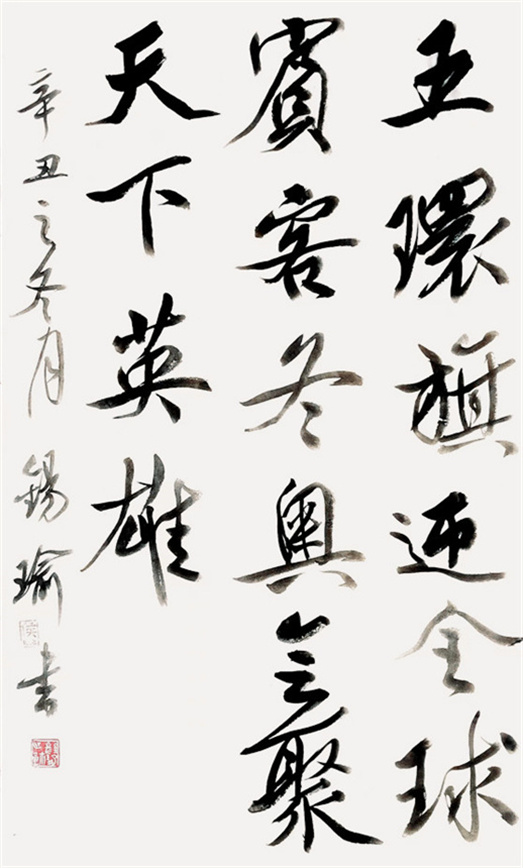 五環旗迎全球
賓客冬奧会聚
天下英雄
辛丑之冬月 錫瑜書